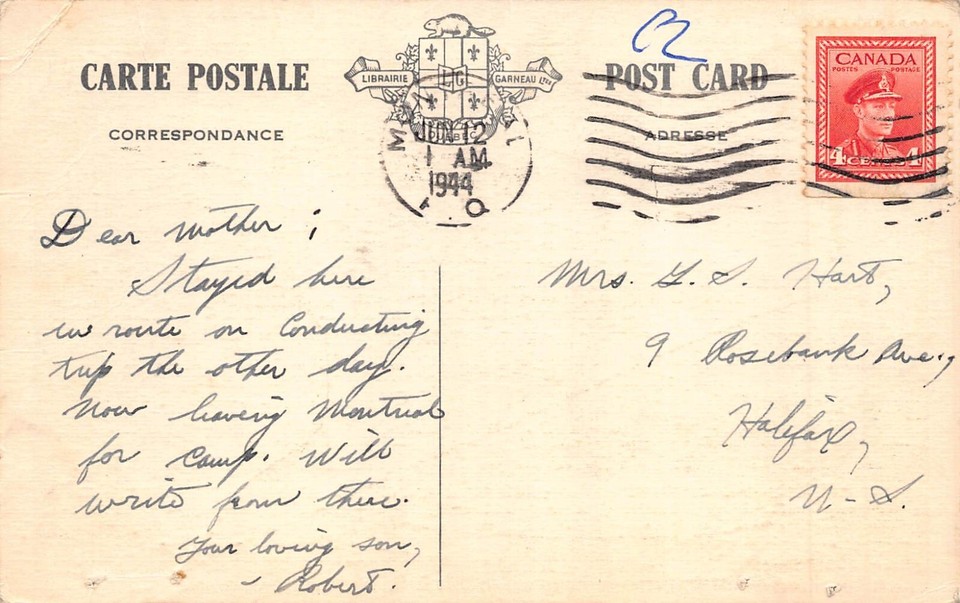 CARTE POSTALE
CORRESPONDANCE
LIBRAIRIE LJG GARNEAU LTÉE
POST CARD
ADRESSE
CANADA
POSTES POSTAGE
4 CENTS 4
M L
JUN 12
1 AM
1944
P.Q
Dear Mother;
Stayed here
en route on Conducting
trip the other day.
Now leaving Montreal
for camp. Will
write from there.
Your loving son,
- Robert.
Mrs. G. S. Hart,
9 Rosebank Ave.,
Halifax,
N-S.